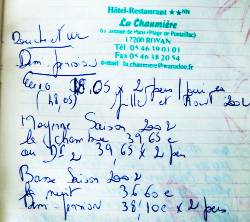 Hôtel-Restaurant ★★NN
La Chaumière
61 avenue de Paris (Plage de Pontaillac)
17200 ROYAN
Tél 05 46 39 01 01
Fax 05 46 38 20 54
e-mail la.chaumiere@wanadoo.fr
Demi-pension
Euro 38.05 x 2 pers / jour en
Juillet et Août 2002
Moyenne Saison 2002
la chambre 39,65 €
ou DP 39,65 x 2 pers
Basse Saison 2002
la nuit 36.60 €
Demi-pension 38,10 € x 2 pers